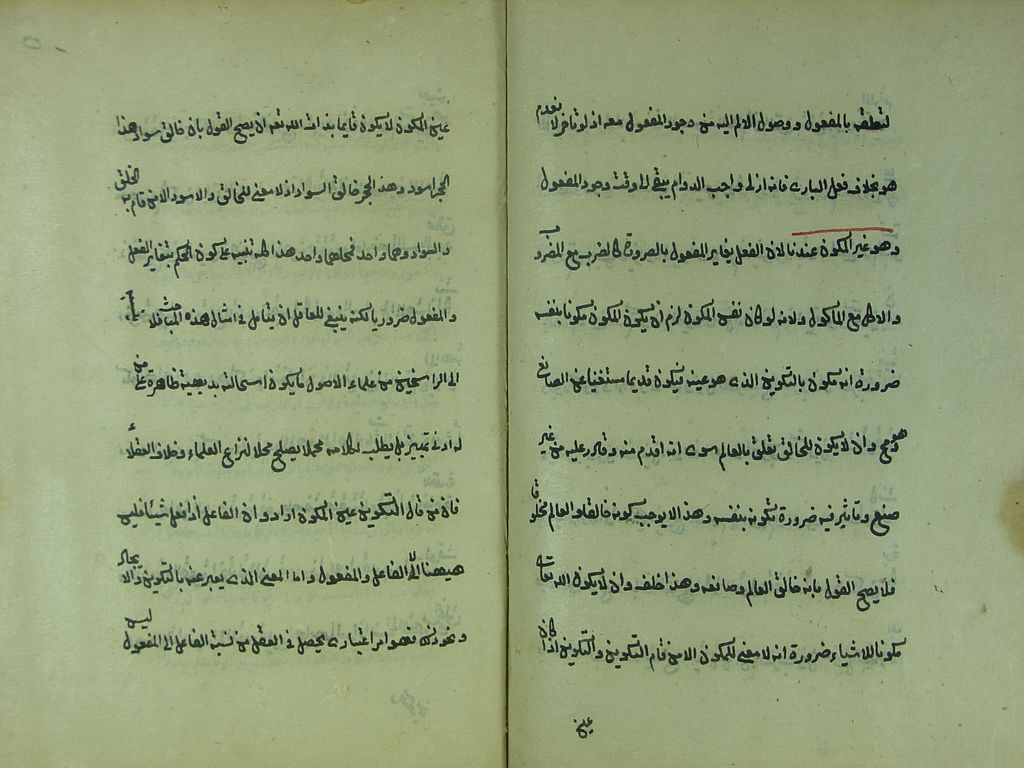 لتعلقه بالمفعول ووصول الالم اليه من وجود المفعول معه اذ لو تاخر لانعدم
هو بخلاف فعل البارى فانه ازلى واجب الدوام يبقى الى وقت وجود المفعول
وهو غير المكون عندنا لان الفعل يغاير المفعول بالضرورة كالضرب مع المضروب
والاكل مع الماكول ولانه لو كان نفس المكون لزم ان يكون المكون مكونا بنفسه
ضرورة انه مكون بالتكوين الذى هو عينه فيكون قديما مستغنيا عن الصانع
وهو مح وان لا يكون للخالق تعلق بالعالم سوى انه اقدم منه وقادر عليه من غير
صنع وتاثير فيه ضرورة تكونه بنفسه وهذا لا يوجب كونه خالقا والعالم مخلوقا
فلا يصح القول بانه خالق العالم وصانعه وهذا خلف وان لا يكون الله تعالى
مكونا للاشياء ضرورة انه لا معنى للمكون الا من قام التكوين والتكوين اذا كان
عين
عين المكون لا يكون قايما بذات الله تعه ان يصح القول بان خالق سواد هذا
الحجر اسود وهذ الحجر خالق السواد اذ لا معنى للخالق والاسود الا من قام به الخلق
والسواد وهما واحد فمحلهما واحد هذا كله تنبيه على كون الحكم بتغاير الفعل
والمفعول ضروريا لكنه ينبغى للعاقل ان يتامل فى امثال هذه المباحث ولا ينسب
الى الراسخين من علماء الاصول ما يكون استحالته بديهية ظاهرة على من
له ادنى تمييز بل يطلب لكلامه محملا يصلح محلا لنزاع العلماء وخلاف العقلاء
فان من قال التكوين عين المكون اراد وان الفاعل اذا فعل شيئا فليس
هيهنا الا الفاعل والمفعول واما المعنى الذى يعبر عنه بالتكوين والايجاد
ونحو ذلك فهو امر اعتبارى يحصل فى العقل من نسبة الفاعل الى المفعول ليس